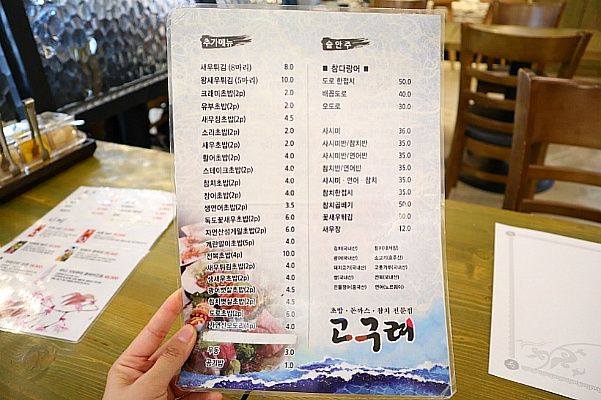 추가메뉴
새우튀김 (8마리) 8.0
왕새우튀김 (5마리) 10.0
크래미초밥(2p) 2.0
유부초밥(2p) 2.0
새우장초밥(2p) 4.5
소라초밥(2p) 2.0
새우초밥(2p) 2.0
활어초밥(2p) 4.0
스테이크초밥(2p) 4.0
참치초밥(2p) 4.0
장어초밥(2p) 4.0
생연어초밥(2p) 3.5
독도꽃새우초밥(2p) 6.0
자연산성게알초밥(2p) 6.0
계란말이초밥(5p) 4.0
전복초밥(4p) 10.0
새우튀김초밥(2p) 4.0
생새우초밥(2p) 4.0
광어뱃살초밥(2p) 4.5
참치뱃살초밥(2p) 4.5
도로초밥(2p) 6.0
4.0
우동 3.0
공기밥 1.0
술안주
■ 참다랑어
도로 한접시 50.0
배꼽도로 40.0
오도로 30.0
사시미 36.0
사시미반/참치반 35.0
사시미반/연어반 35.0
참치반/연어반 35.0
사시미 · 연어 · 참치 35.0
참치한접시 35.0
참치곱빼기 50.0
꽃새우튀김 10.0
새우장 12.0
김치(국내산)
광어(국내산)
소고기(호주산)
돼지고기(국내산)
고춧가루(국내산)
쌀(국내산)
전복(국내산)
민물장어(중국산)
연어(노르웨이)
초밥 · 돈까스 · 참치 전문점
고구려